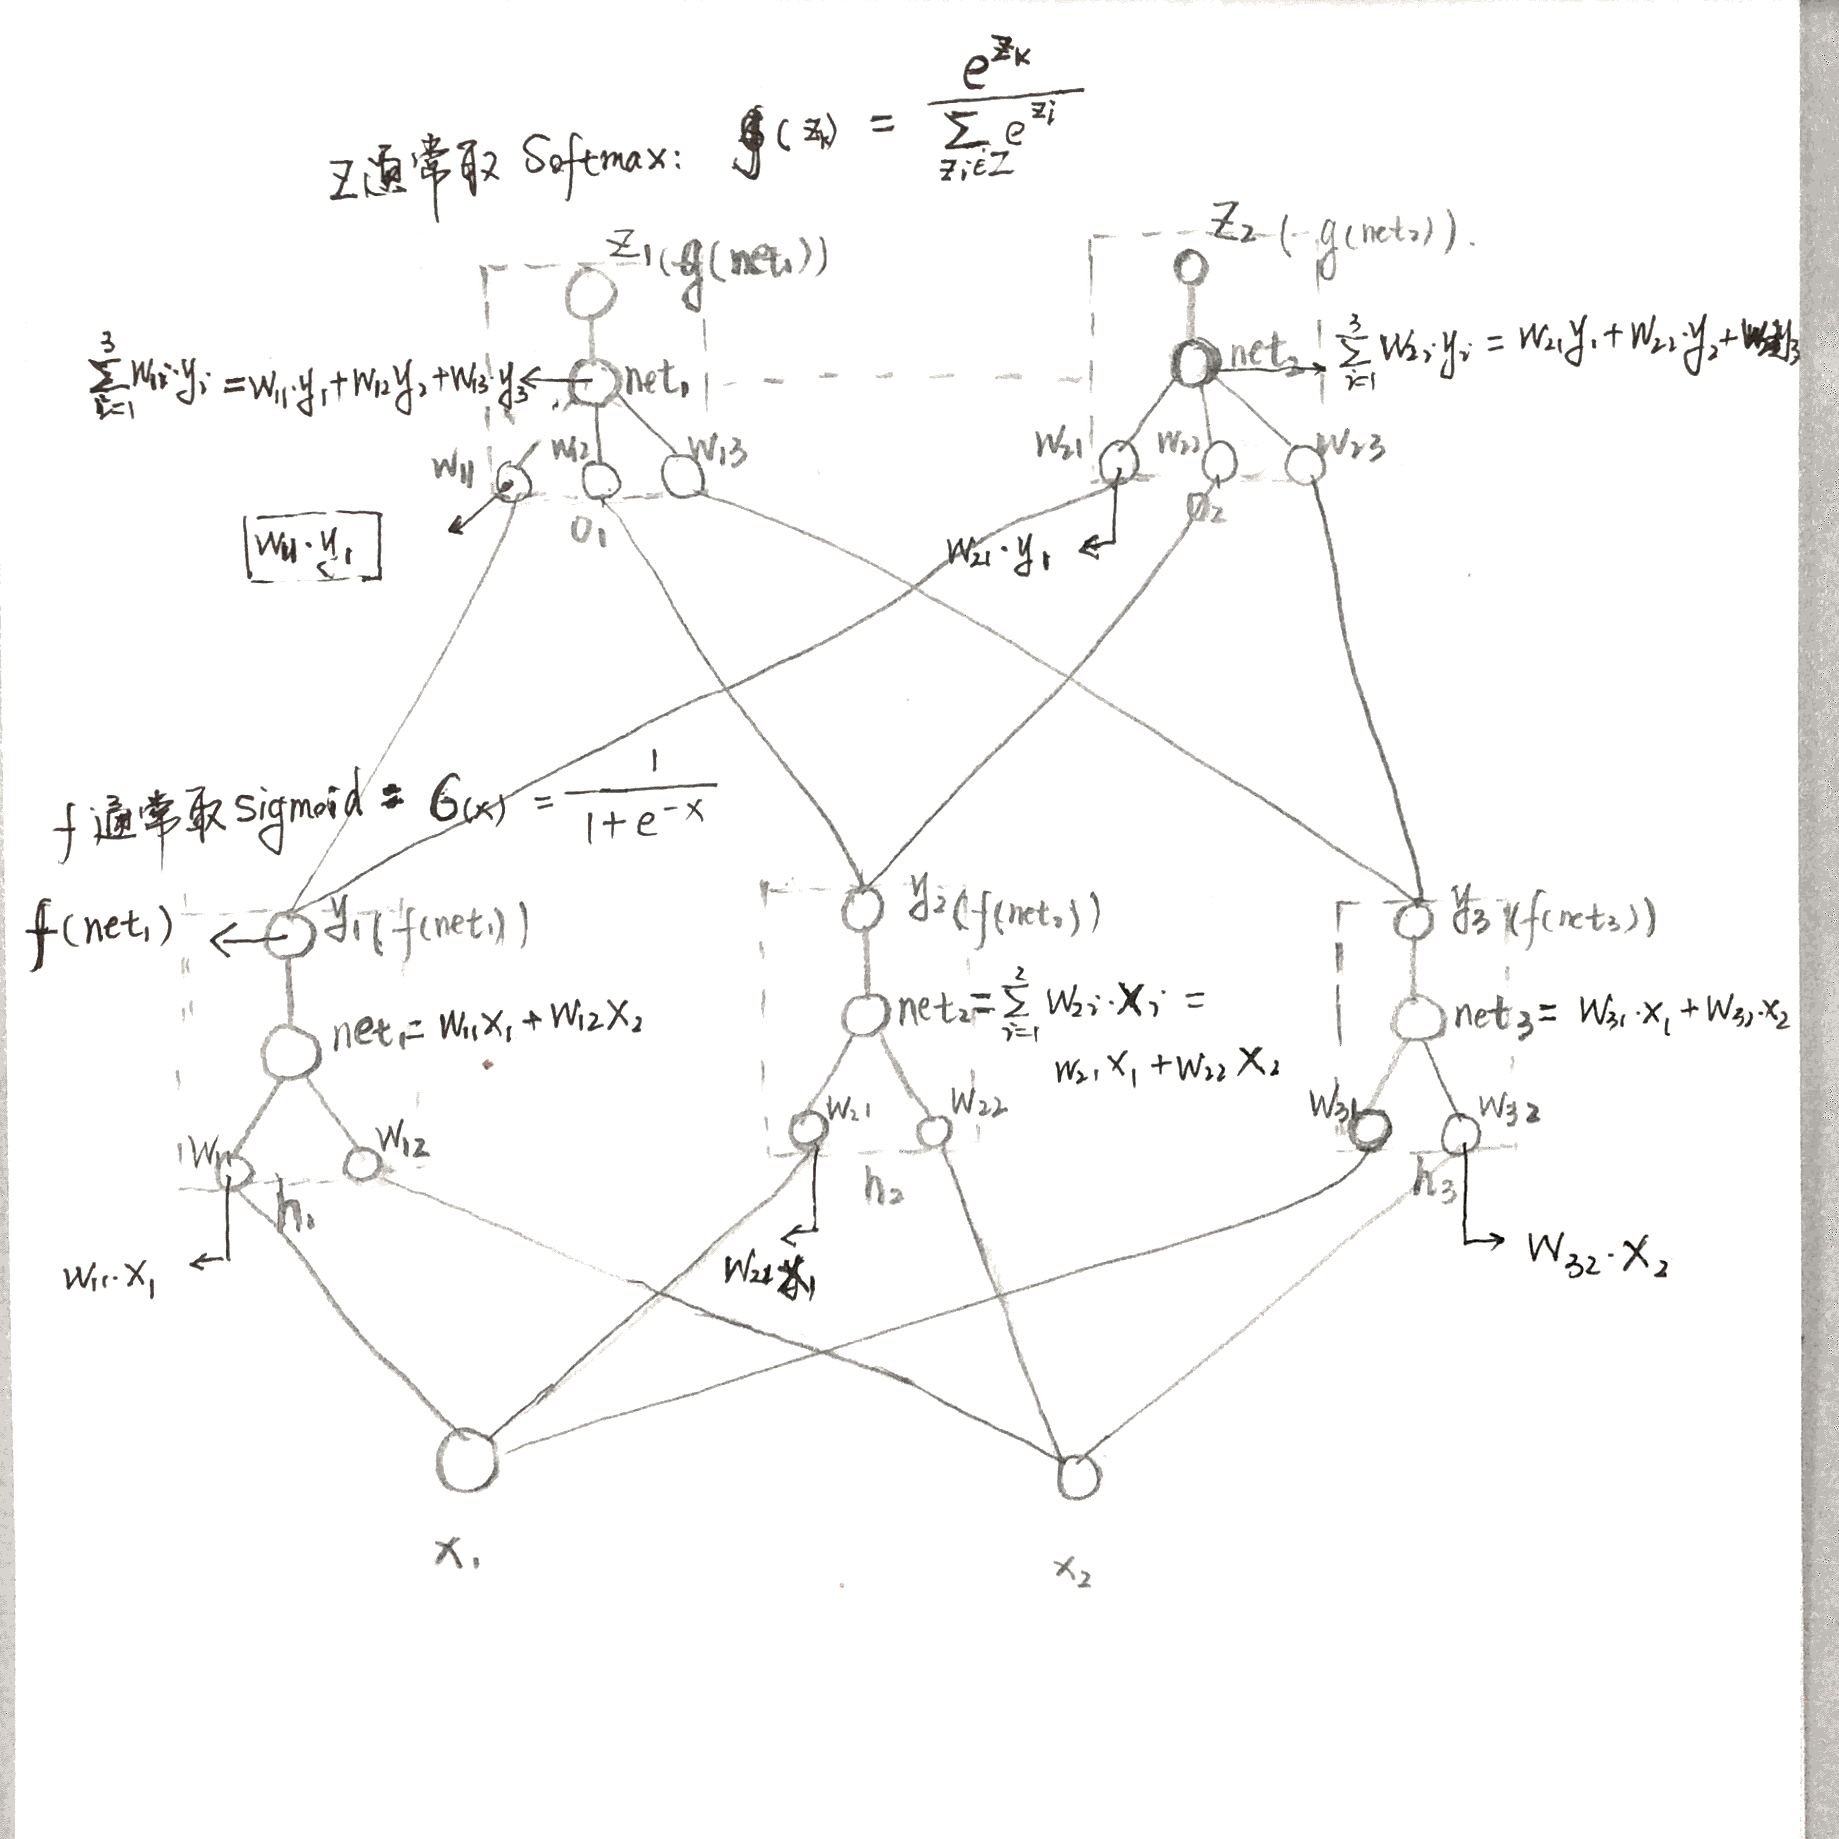 Z通常取 Softmax: g(z_k) = e^{z_k} / Σ_{z_i∈Z} e^{z_i}
Z₁(g(net₁))
Z₂(g(net₂)).
Σ_{i=1}^{3} W₁ᵢ·yᵢ = W₁₁·y₁+W₁₂y₂+W₁₃·y₃
net₁
net₂
Σ_{i=1}^{3} W₂ᵢ·yᵢ = W₂₁y₁+W₂₂·y₂+W₂₃y₃
W₁₁
W₁₂
W₁₃
W₂₁
W₂₂
W₂₃
W₁₁·y₁
O₁
W₂₁·y₁
O₂
f通常取sigmoid: σ(x) = 1 / (1+e^{-x})
f(net₁)
y₁(f(net₁))
y₂(f(net₂))
y₃(f(net₃))
net₁=W₁₁X₁+W₁₂X₂
net₂=Σ_{i=1}^{2} W₂ᵢ·Xᵢ =
W₂₁X₁+W₂₂X₂
net₃= W₃₁·X₁+W₃₂·X₂
W₁₁
W₁₂
W₂₁
W₂₂
W₃₁
W₃₂
h₁
h₂
h₃
W₁₁·X₁
W₃₂·X₂
X₁
X₂